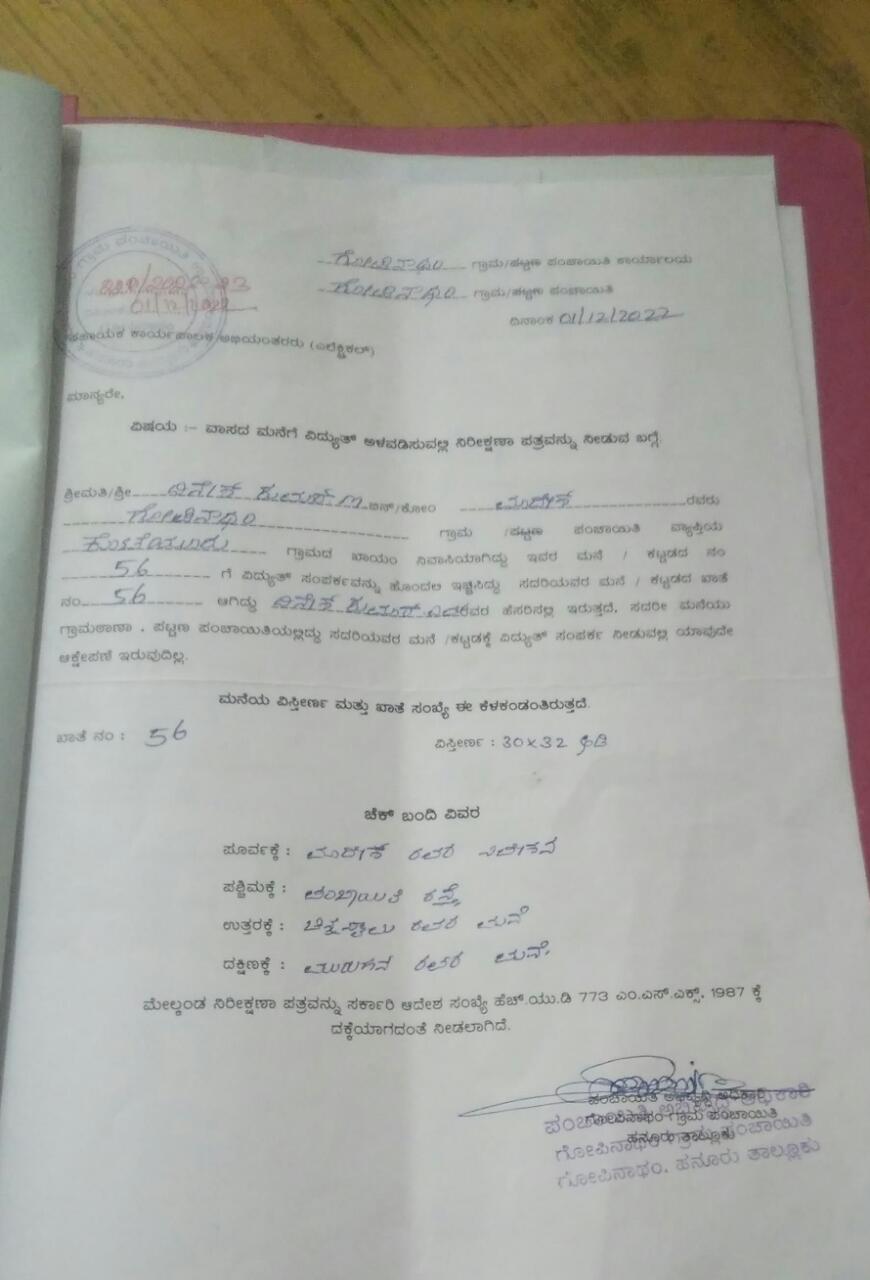 ಗ್ರಾಮ ಪಂಚಾಯಿತಿ
ಗೋಪಿನಾಥಂ ಗ್ರಾಮ/ಪಟ್ಟಣ ಪಂಚಾಯಿತಿ ಕಾರ್ಯಾಲಯ
01/12/2022
ಗೋಪಿನಾಥಂ ಗ್ರಾಮ/ಪಟ್ಟಣ ಪಂಚಾಯಿತಿ
ದಿನಾಂಕ 01/12/2022
ಸಹಾಯಕ ಕಾರ್ಯಪಾಲಕ ಅಭಿಯಂತರರು (ಎಲೆಕ್ಟ್ರಿಕಲ್)
ಮಾನ್ಯರೇ,
ವಿಷಯ :- ವಾಸದ ಮನೆಗೆ ವಿದ್ಯುತ್ ಅಳವಡಿಸುವಲ್ಲಿ ನಿರೀಕ್ಷಣಾ ಪತ್ರವನ್ನು ನೀಡುವ ಬಗ್ಗೆ.
ಶ್ರೀಮತಿ/ಶ್ರೀ ದಿನೇಶ್ ಕುಮಾರ್ M ಬಿನ್/ಕೋಂ ಮಾದೇಶ್ ರವರು
ಗೋಪಿನಾಥಂ ಗ್ರಾಮ /ಪಟ್ಟಣ ಪಂಚಾಯಿತಿ ವ್ಯಾಪ್ತಿಯ
ಗ್ರಾಮದ ಖಾಯಂ ನಿವಾಸಿಯಾಗಿದ್ದು ಇವರ ಮನೆ / ಕಟ್ಟಡದ ನಂ
56 ಗೆ ವಿದ್ಯುತ್ ಸಂಪರ್ಕವನ್ನು ಹೊಂದಲು ಇಚ್ಚಿಸಿದ್ದು ಸದರಿಯವರ ಮನೆ / ಕಟ್ಟಡದ ಖಾತೆ
ನಂ 56 ಆಗಿದ್ದು ದಿನೇಶ್ ಕುಮಾರ್ ಎಂ ರವರ ಹೆಸರಿನಲ್ಲಿ ಇರುತ್ತದೆ. ಸದರೀ ಮನೆಯು
ಗ್ರಾಮಠಾಣಾ . ಪಟ್ಟಣ ಪಂಚಾಯಿತಿಯಲ್ಲಿದ್ದು ಸದರಿಯವರ ಮನೆ /ಕಟ್ಟಡಕ್ಕೆ ವಿದ್ಯುತ್ ಸಂಪರ್ಕ ನೀಡುವಲ್ಲಿ ಯಾವುದೇ
ಆಕ್ಷೇಪಣೆ ಇರುವುದಿಲ್ಲ.
ಮನೆಯ ವಿಸ್ತೀರ್ಣ ಮತ್ತು ಖಾತೆ ಸಂಖ್ಯೆ ಈ ಕೆಳಕಂಡಂತಿರುತ್ತದೆ.
ಖಾತೆ ನಂ : 56 ವಿಸ್ತೀರ್ಣ : 30×32 ಅಡಿ
ಚೆಕ್ ಬಂದಿ ವಿವರ
ಪೂರ್ವಕ್ಕೆ : ಮಾದೇಶ್ ರವರ ನಿವೇಶನ
ಪಶ್ಚಿಮಕ್ಕೆ : ಪಂಚಾಯಿತಿ ರಸ್ತೆ
ಉತ್ತರಕ್ಕೆ : ರವರ ಮನೆ
ದಕ್ಷಿಣಕ್ಕೆ : ಮುರುಗನ ರವರ ಮನೆ.
ಮೇಲ್ಕಂಡ ನಿರೀಕ್ಷಣಾ ಪತ್ರವನ್ನು ಸರ್ಕಾರಿ ಆದೇಶ ಸಂಖ್ಯೆ ಹೆಚ್.ಯು.ಡಿ 773 ಎಂ.ಎಸ್.ಎಕ್ಸ್. 1987 ಕ್ಕೆ
ದಕ್ಕೆಯಾಗದಂತೆ ನೀಡಲಾಗಿದೆ.
ಪಂಚಾಯಿತಿ ಅಭಿವೃದ್ಧಿ ಅಧಿಕಾರಿ
ಗೋಪಿನಾಥಂ ಗ್ರಾಮ ಪಂಚಾಯಿತಿ
ಹನೂರು ತಾಲ್ಲೂಕು
ಪಂಚಾಯಿತಿ ಅಭಿವೃದ್ಧಿ ಅಧಿಕಾರಿ
ಗೋಪಿನಾಥಂ ಗ್ರಾಮ ಪಂಚಾಯಿತಿ
ಗೋಪಿನಾಥಂ. ಹನೂರು ತಾಲ್ಲೂಕು